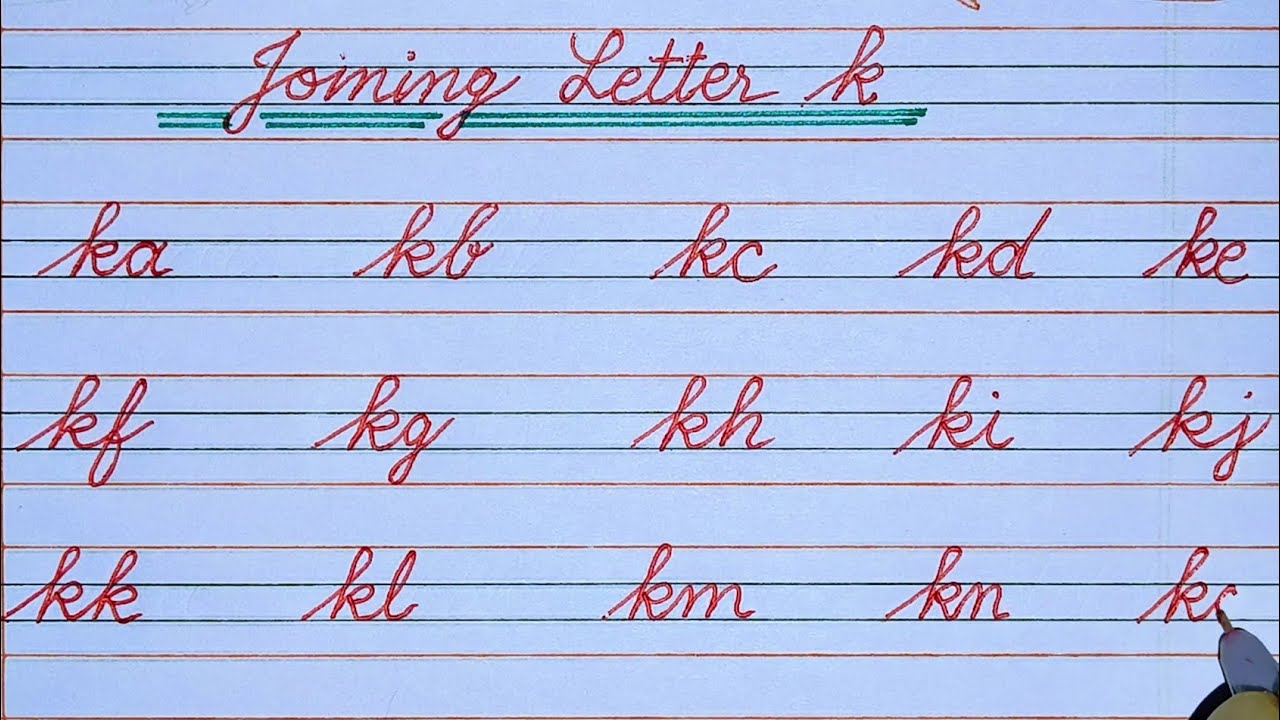 Joining Letter k
ka kb kc kd ke
kf kg kh ki kj
kk kl km kn kc